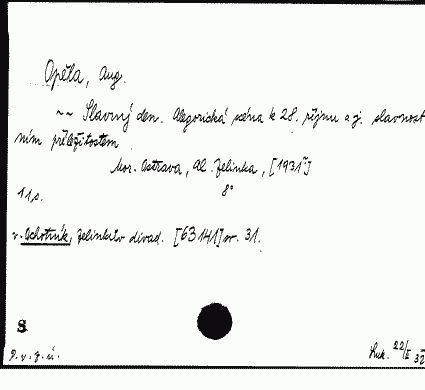 Opěla, Aug.
~~ Slavný den. Alegorická scéna k 28. říjnu a j. slavnost
ním příležitostem.
Mor. Ostrava, Al. Jelínka, [1931]
11 s. 8°
v. Ochotník, Jelínkův divad. [63141] sv. 31.
S
P. v. j. ú. 22/I 32